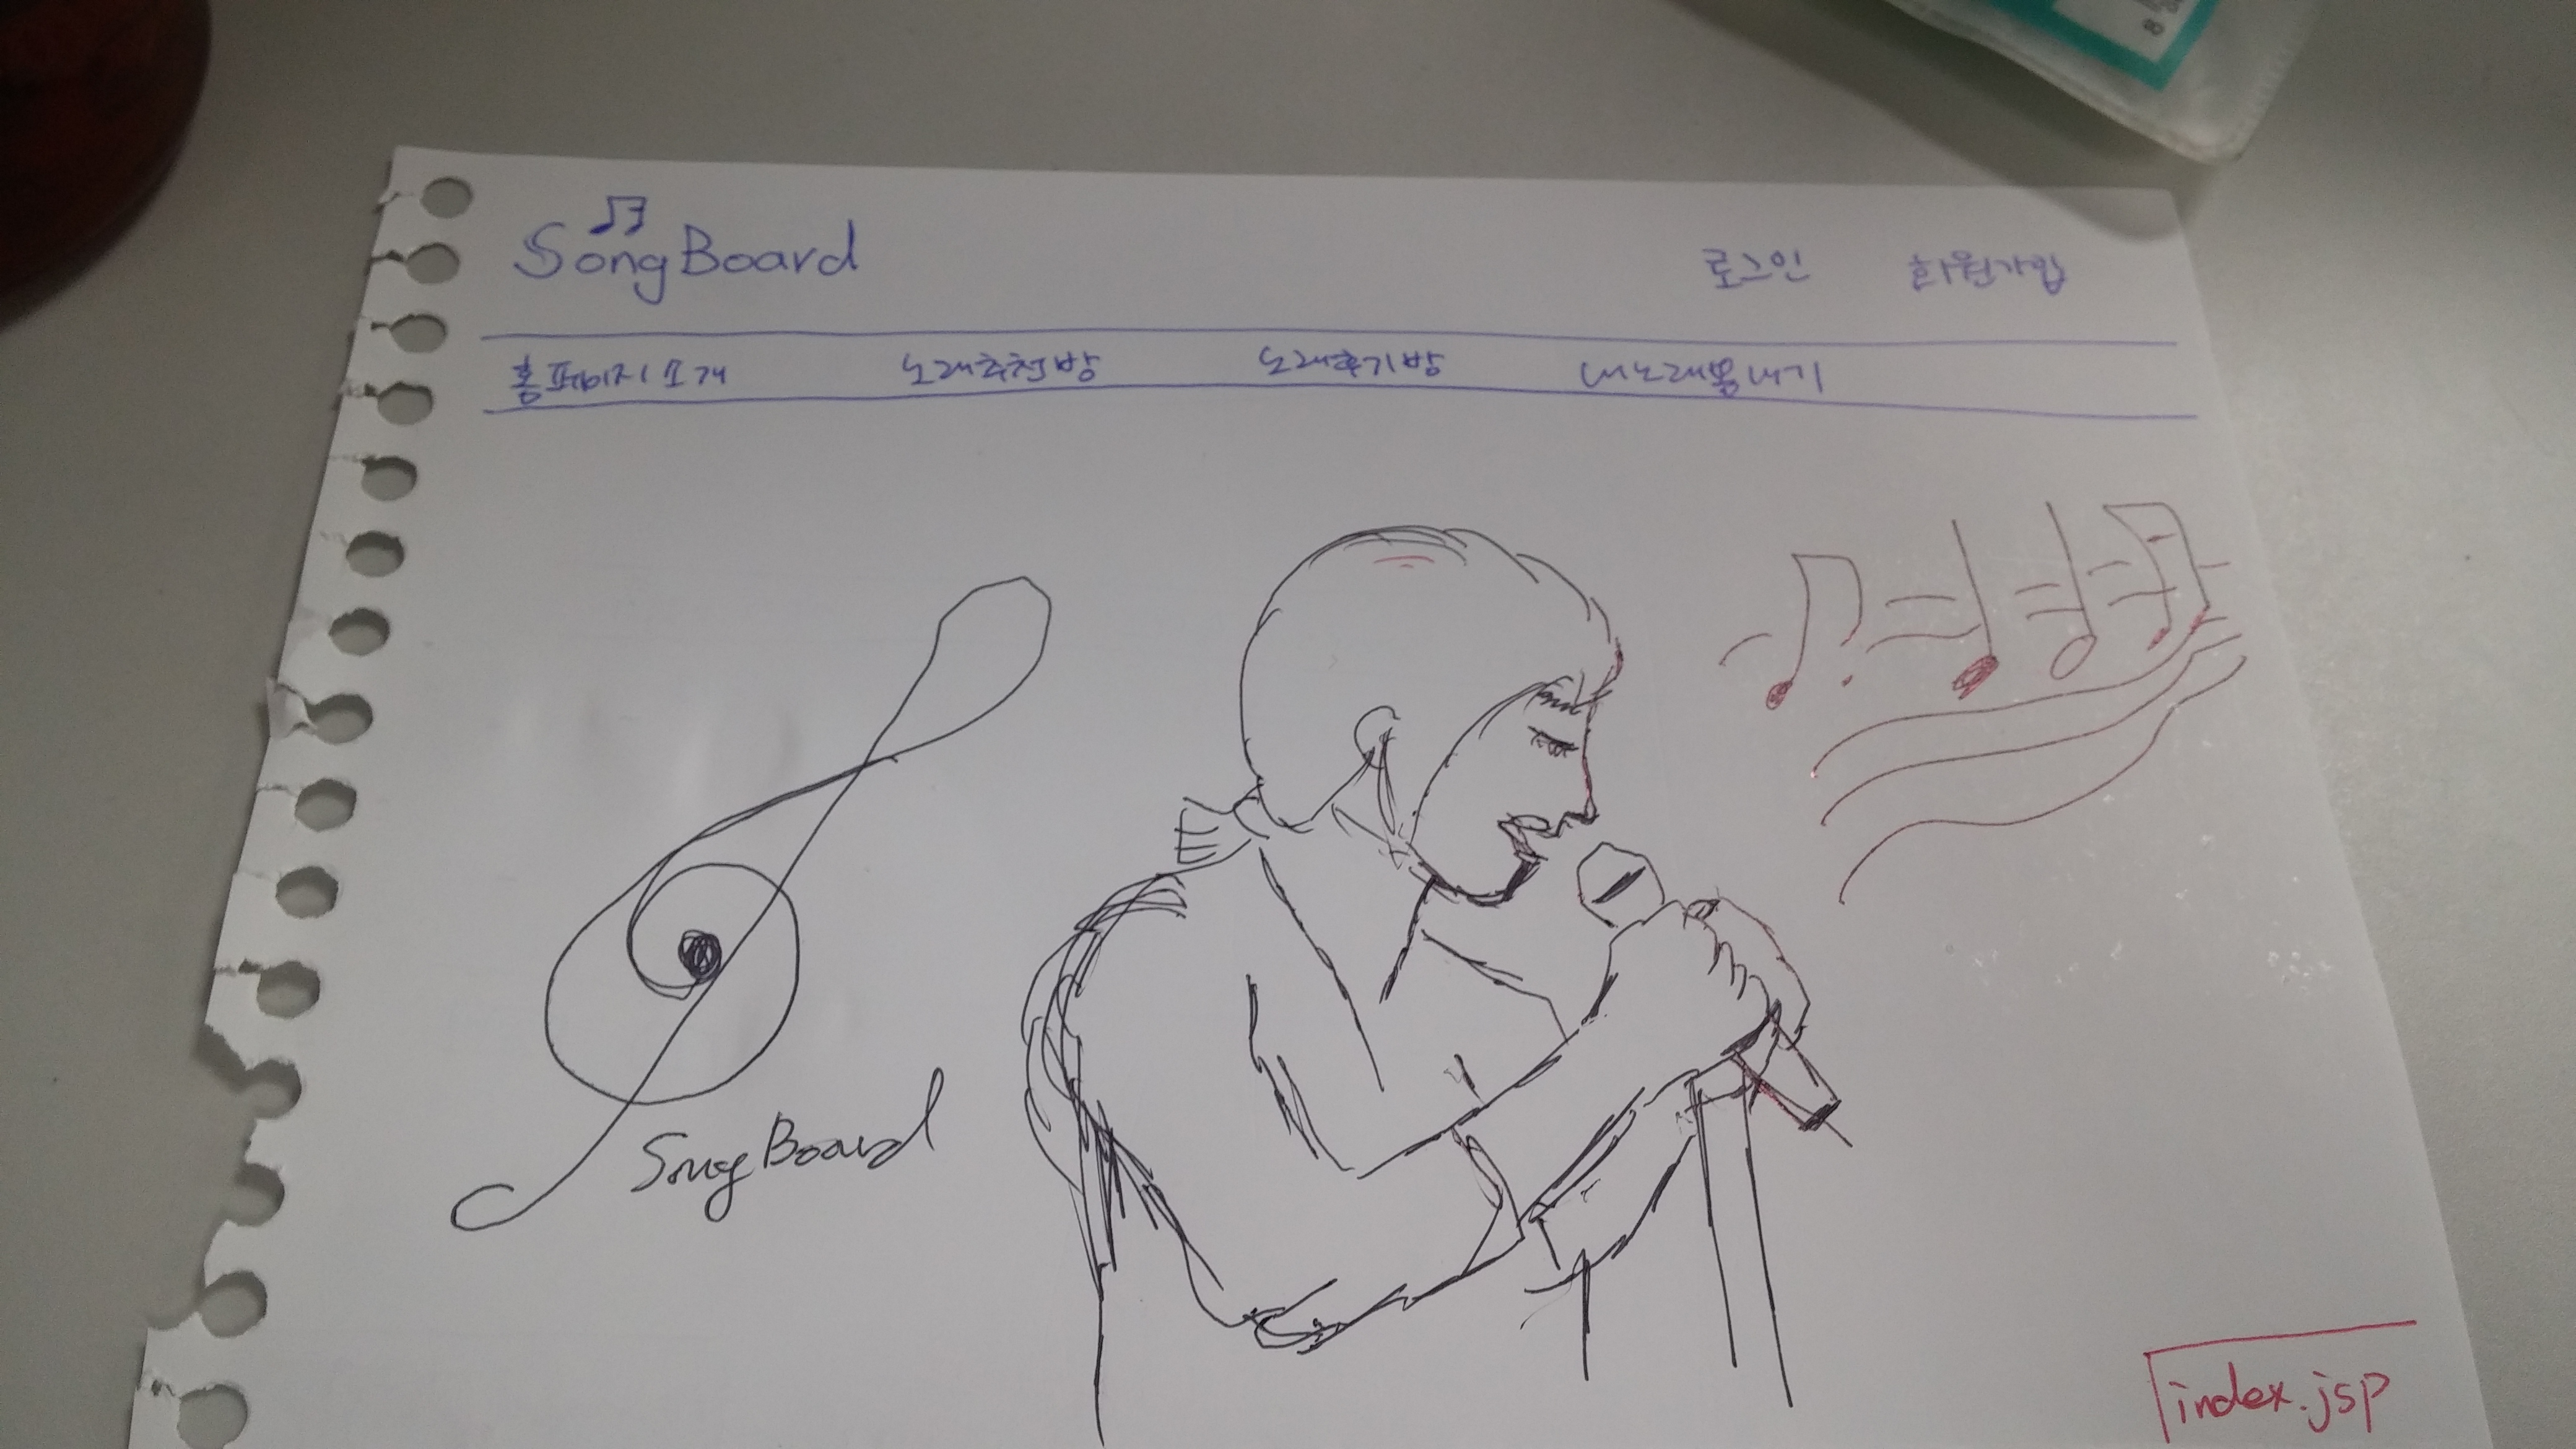 SongBoard
로그인 회원가입
홈페이지소개 노래추천방 노래후기방 내노래뽐내기
SongBoard
index.jsp